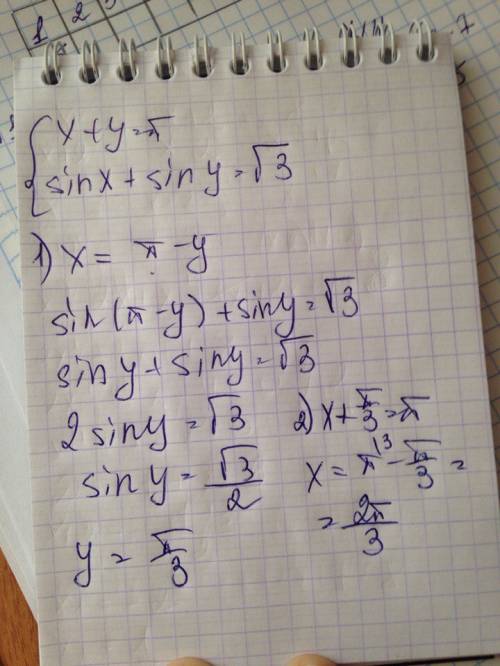 1 2
{ x + y = π
sin x + sin y = √3
1) x = π - y
sin(π - y) + sin y = √3
sin y + sin y = √3
2 sin y = √3
sin y = √3/2
y = π/3
2) x + π/3 = π
x = π^{\3} - π/3 =
= 2π/3